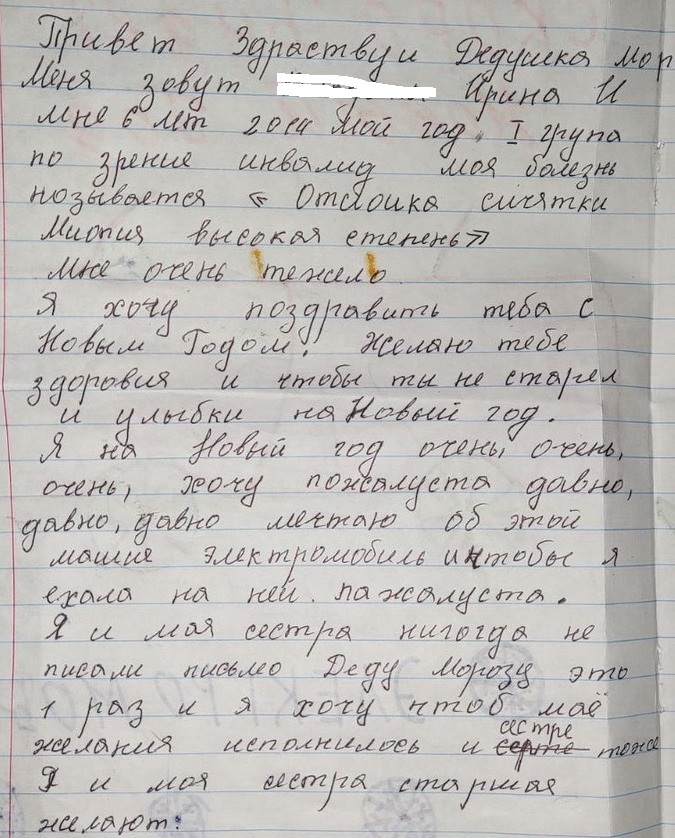 Привет Здраствуи Дедушка Мор
Меня зовут Ирина И
мне 6 лет 2014 мой год. I група
по зрение инвалид моя болезнь
незывается « Отслоика сичятки
Миопия высокая степень»
Мне очень тежело
Я хочу поздравить теба с
Новым Годом. Желаю тебе
здоровия и чтобы ты не старел
и улыбки на Новый год.
Я на Новый год очень, очень,
очень, хочу пожалуста давно,
давно, давно мечтаю об этой
машие электромобиль и чтобы я
ехала на ней. пажалуста.
Я и моя сестра нигогда не
писали письмо Деду Морозу это
1 раз и я хочу чтоб маё
желания исполнилось и сестре тоже
Я и моя сестра старшая
желают: